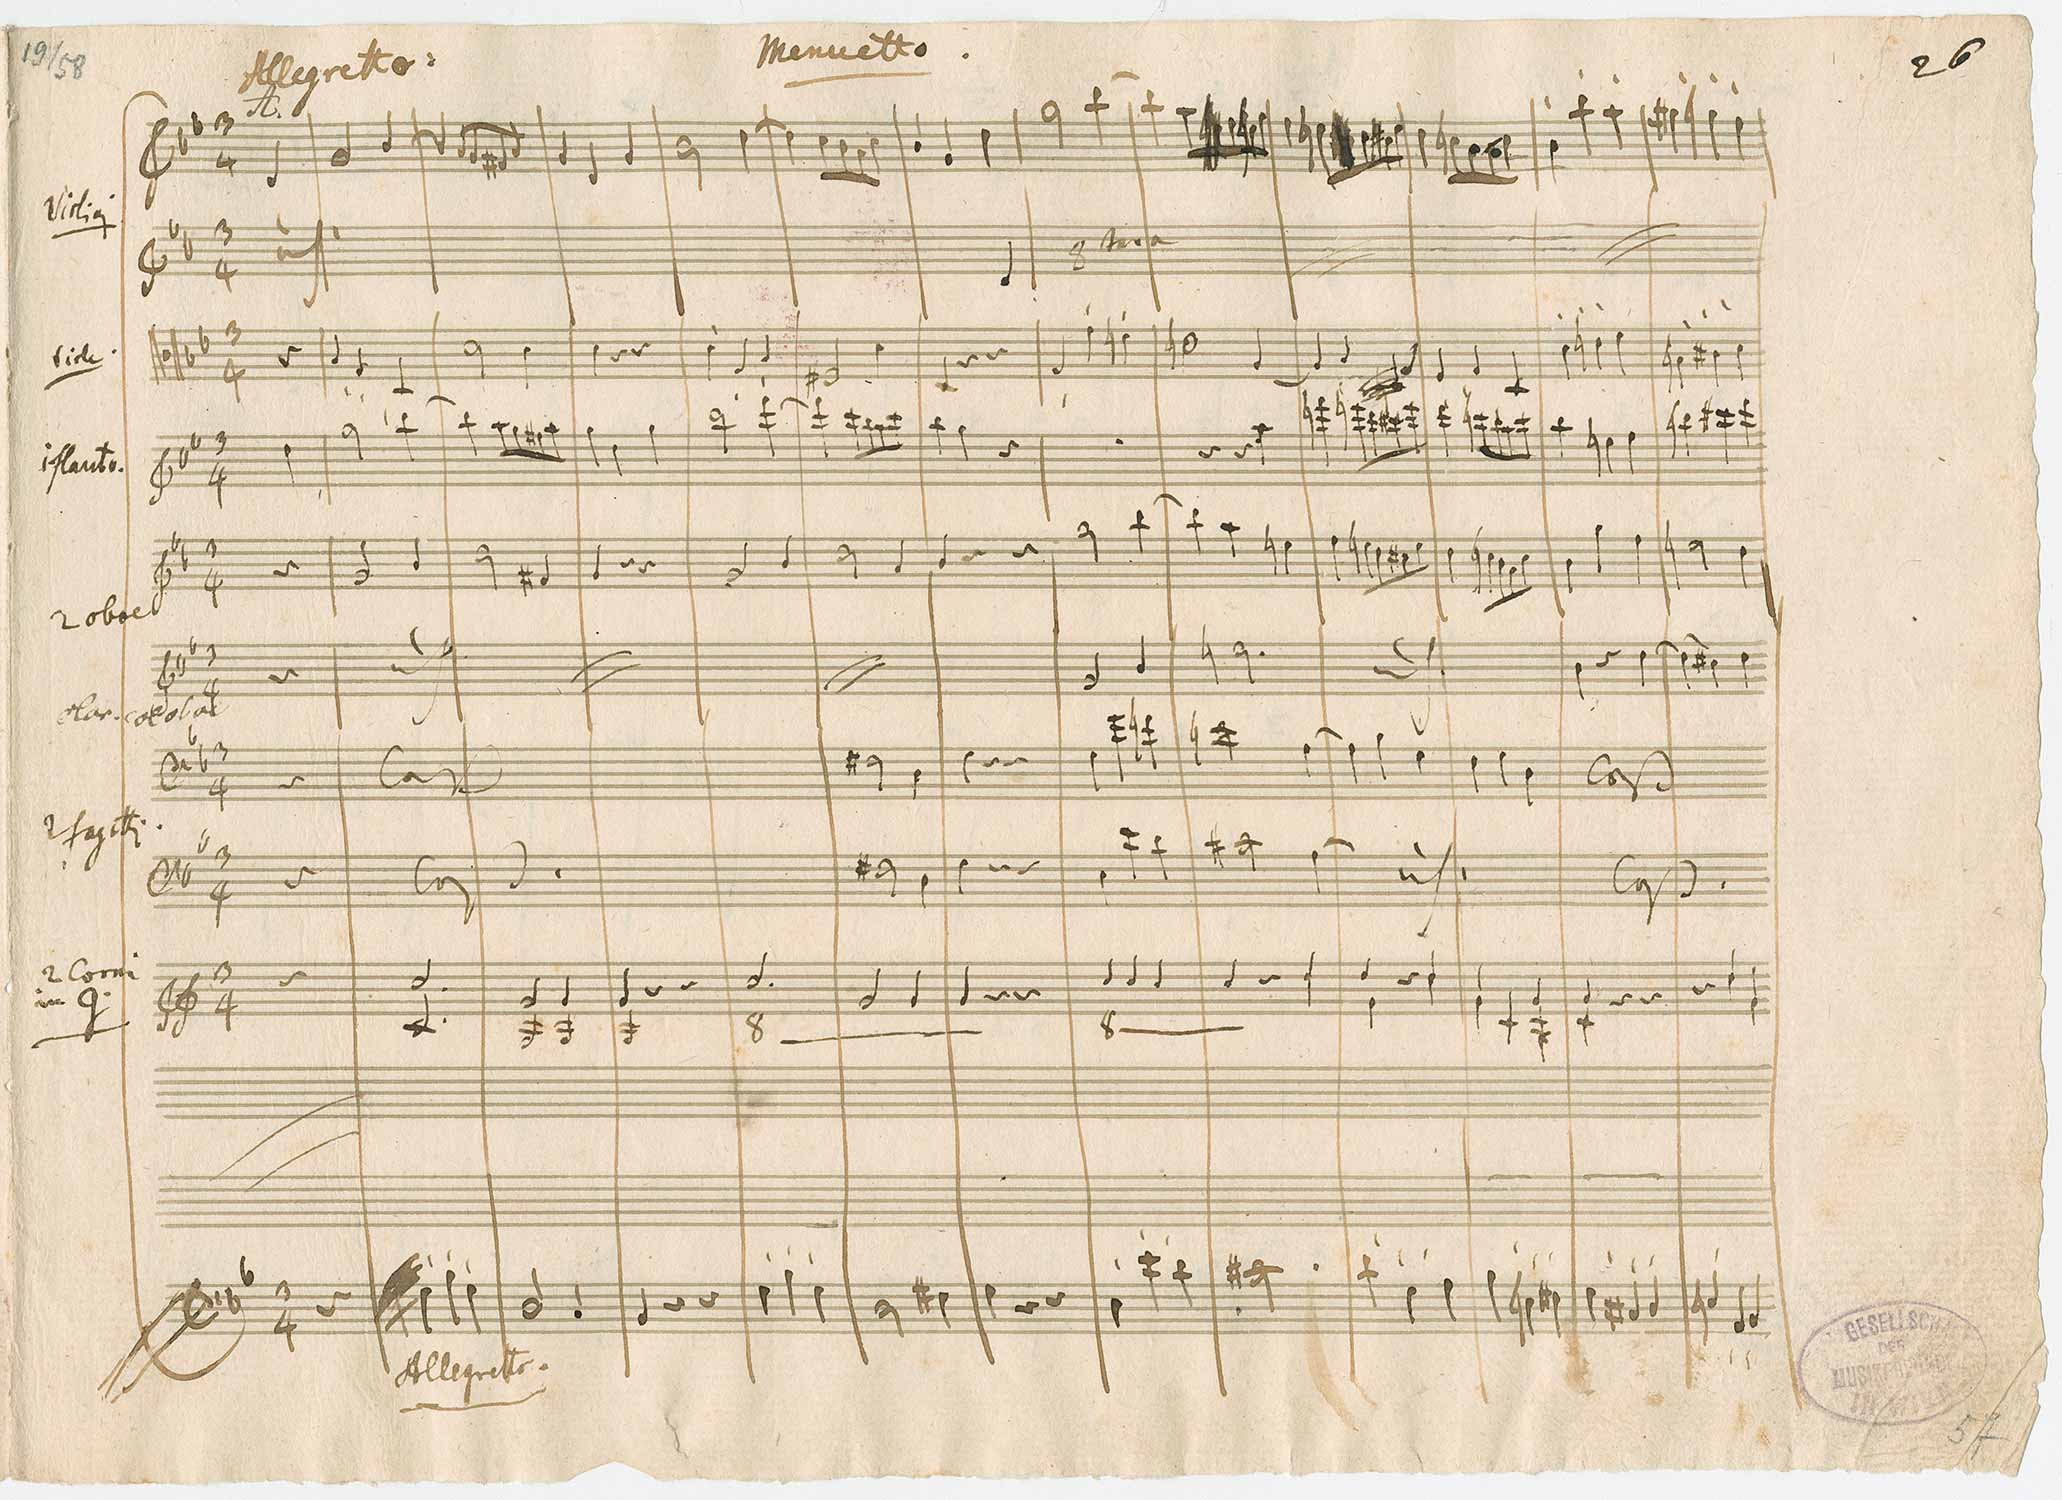 19/58
Allegretto:
Menuetto.
26
Violini
8tava
Viole.
1 flauto.
2 oboe
clar. co l oboe
Co B
2 fagotti.
Co B.
2 Corni
in G.
8
8
Allegretto.
GESELLSCH
DER
MUSIKFREUNDE
IN WIEN
57